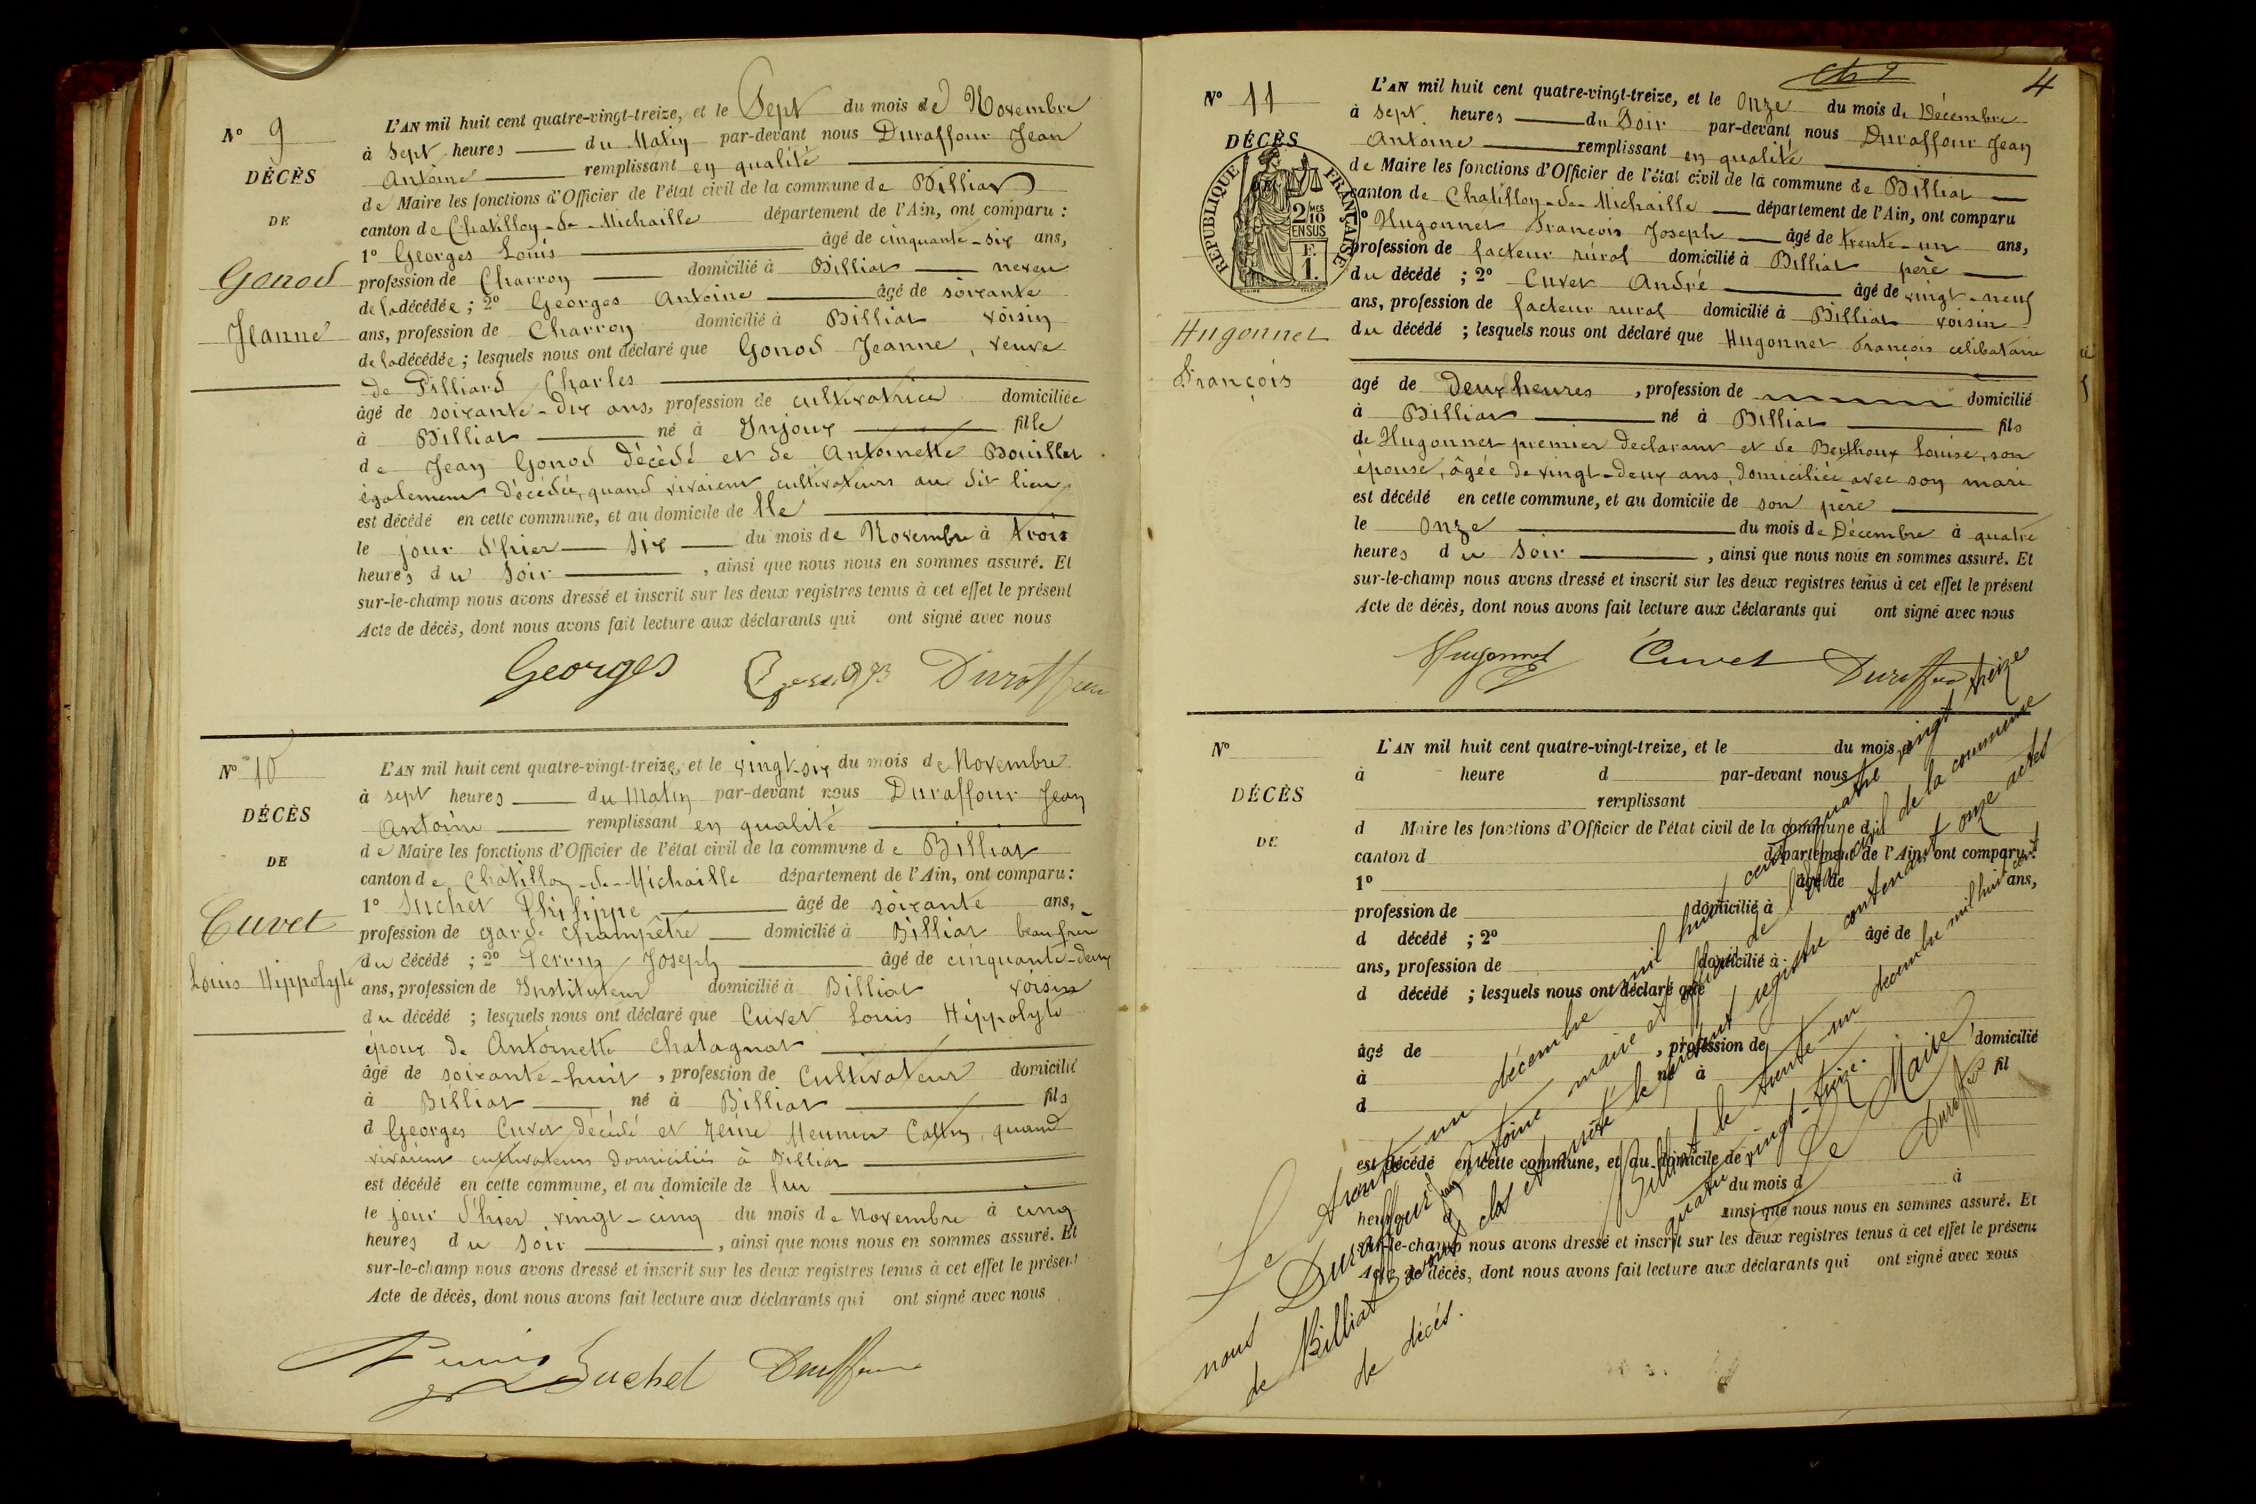 N° 9
DÉCÈS
DE
Gonod
Jeanne
L'AN mil huit cent quatre-vingt-treize, et le Sept du mois de Novembre
à Sept heures du Matin par-devant nous Duraffour Jean
Antoine remplissant en qualité
de Maire les fonctions d'Officier de l'état civil de la commune de Billiat
canton de Chatillon-de-Michaille département de l'Ain, ont comparu :
1° Georges Louis âgé de cinquante-six ans,
profession de Charron domicilié à Billiat neveu
de la décédée ; 2° Georges Antoine âgé de soixante
ans, profession de Charron domicilié à Billiat voisin
de la décédée ; lesquels nous ont déclaré que Gonod Jeanne, veuve
de Filliard Charles
âgé de soixante-dix ans, profession de cultivatrice domiciliée
à Billiat né à Injoux fille
de Jean Gonod décédé et de Antoinette Bouillet
également décédée, quand vivaient cultivateurs au dit lieu
est décédé en cette commune, et au domicile de
le jour d'hier six du mois de Novembre à trois
heures du Soir , ainsi que nous nous en sommes assuré. Et
sur-le-champ nous avons dressé et inscrit sur les deux registres tenus à cet effet le présent
Acte de décès, dont nous avons fait lecture aux déclarants qui ont signé avec nous
Georges Duraffour
N° 10
DÉCÈS
DE
Cuvet
Louis Hippolyte
L'AN mil huit cent quatre-vingt-treize, et le vingt-six du mois de Novembre
à sept heures du Matin par-devant nous Duraffour Jean
Antoine remplissant en qualité
de Maire les fonctions d'Officier de l'état civil de la commune de Billiat
canton de Chatillon-de-Michaille département de l'Ain, ont comparu :
1° Suchet Philippe âgé de soixante ans,
profession de garde champêtre domicilié à Billiat beau frère
du décédé ; 2° Joseph âgé de cinquante-deux
ans, profession de Instituteur domicilié à Billiat voisin
du décédé ; lesquels nous ont déclaré que Cuvet Louis Hippolyte
époux de Antoinette Chatagnat
âgé de soixante-huit , profession de Cultivateur domicilié
à Billiat né à Billiat fils
d Georges Cuvet décédé et Meunier quand
vivaient cultivateurs domiciliés à Billiat
est décédé en cette commune, et au domicile de lui
le jour d'hier vingt-cinq du mois de Novembre à cinq
heures du Soir , ainsi que nous nous en sommes assuré. Et
sur-le-champ nous avons dressé et inscrit sur les deux registres tenus à cet effet le présent
Acte de décès, dont nous avons fait lecture aux déclarants qui ont signé avec nous
Suchet Duraffour
4
N° 11
DÉCÈS
RÉPUBLIQUE FRANÇAISE
2 MES 10
EN SUS
F.
1.
Hugonnet
François
L'AN mil huit cent quatre-vingt-treize, et le onze du mois de Décembre
à Sept heures du Soir par-devant nous Duraffour Jean
Antoine remplissant en qualité
de Maire les fonctions d'Officier de l'état civil de la commune de Billiat
canton de Chatillon-de-Michaille département de l'Ain, ont comparu
1° Hugonnet François Joseph âgé de trente-un ans,
profession de facteur rural domicilié à Billiat père
du décédé ; 2° Cuvet André âgé de vingt-neuf
ans, profession de facteur rural domicilié à Billiat voisin
du décédé ; lesquels nous ont déclaré que Hugonnet François célibataire
âgé de Deux heures , profession de domicilié
à Billiat né à Billiat fils
de Hugonnet premier declarant et de Berthoux Louise, son
épouse, âgée de vingt-deux ans, domiciliée avec son mari
est décédé en cette commune, et au domicile de son père
le onze du mois de Décembre à quatre
heures du Soir , ainsi que nous nous en sommes assuré. Et
sur-le-champ nous avons dressé et inscrit sur les deux registres tenus à cet effet le présent
Acte de décès, dont nous avons fait lecture aux déclarants qui ont signé avec nous
Hugonnet Cuvet Duraffour
N°
DÉCÈS
DE
L'AN mil huit cent quatre-vingt-treize, et le du mois d
à heure d par-devant nous
remplissant
d Maire les fonctions d'Officier de l'état civil de la commune d
canton d département de l'Ain, ont comparu :
1° âgé de ans,
profession de domicilié à
d décédé ; 2° âgé de
ans, profession de domicilié à
d décédé ; lesquels nous ont déclaré que
âgé de , profession de domicilié
à né à fil
d
est décédé en cette commune, et au domicile de
le du mois d à
heure d ainsi que nous nous en sommes assuré. Et
sur-le-champ nous avons dressé et inscrit sur les deux registres tenus à cet effet le présent
Acte de décès, dont nous avons fait lecture aux déclarants qui ont signé avec nous
Le trente un décembre mil huit cent quatre vingt treize
nous Duraffour Jean Antoine maire et officier de l'état civil de la commune
de Billiat avons clos et arrêté le présent registre contenant onze actes
de décès.
Billiat le trente-un décembre mil huit cent
quatre vingt-treize.
Le Maire
Duraffour